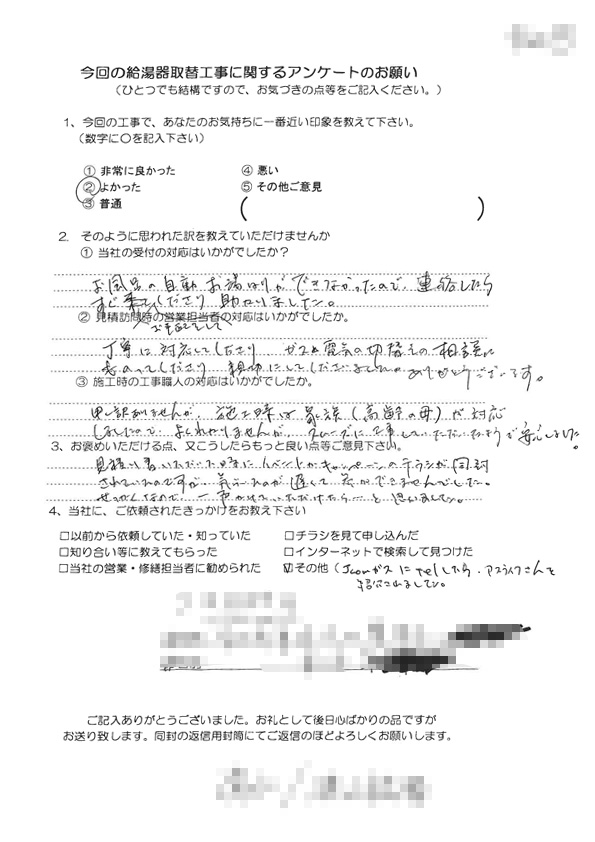 今回の給湯器取替工事に関するアンケートのお願い
（ひとつでも結構ですので、お気づきの点等をご記入ください。）
1、今回の工事で、あなたのお気持ちに一番近い印象を教えて下さい。
（数字に○を記入下さい）
① 非常に良かった ④ 悪い
② よかった ⑤ その他ご意見
③ 普通 ( )
2. そのように思われた訳を教えていただけませんか
① 当社の受付の対応はいかがでしたか？
お風呂の自動お湯はりができなかったので、連絡したら
すぐ来てくださり 助かりました。
② 見積訪問時の営業担当者の対応はいかがでしたか。
丁寧に対応してくださり ガスと電気の切替えの相談に
ものってくださり 親切にしてくださいました。ありがとうございます。
③ 施工時の工事職人の対応はいかがでしたか。
申し訳ありませんが、施工時は家族（高齢の母）が対応
しましたので、よくわかりませんが、スムーズに工事していただいたそうで安心しました。
3、お褒めいただける点、又こうしたらもっと良い点等ご意見下さい。
見積り書いただいた時に イベントかキャンペーンのチラシが同封
されていたのですが、気づくのが遅くて 参加できませんでした。
せっかくなので、一声かけていただけたら…と思いました。
4、当社に、ご依頼されたきっかけをお教え下さい
□以前から依頼していた・知っていた □チラシを見て申し込んだ
□知り合い等に教えてもらった □インターネットで検索して見つけた
□当社の営業・修繕担当者に勧められた ☑その他（ Jcomガスに telしたら、アスライフさんを
紹介されました。
ご記入ありがとうございました。お礼として後日心ばかりの品ですが
お送り致します。同封の返信用封筒にてご返信のほどよろしくお願いします。